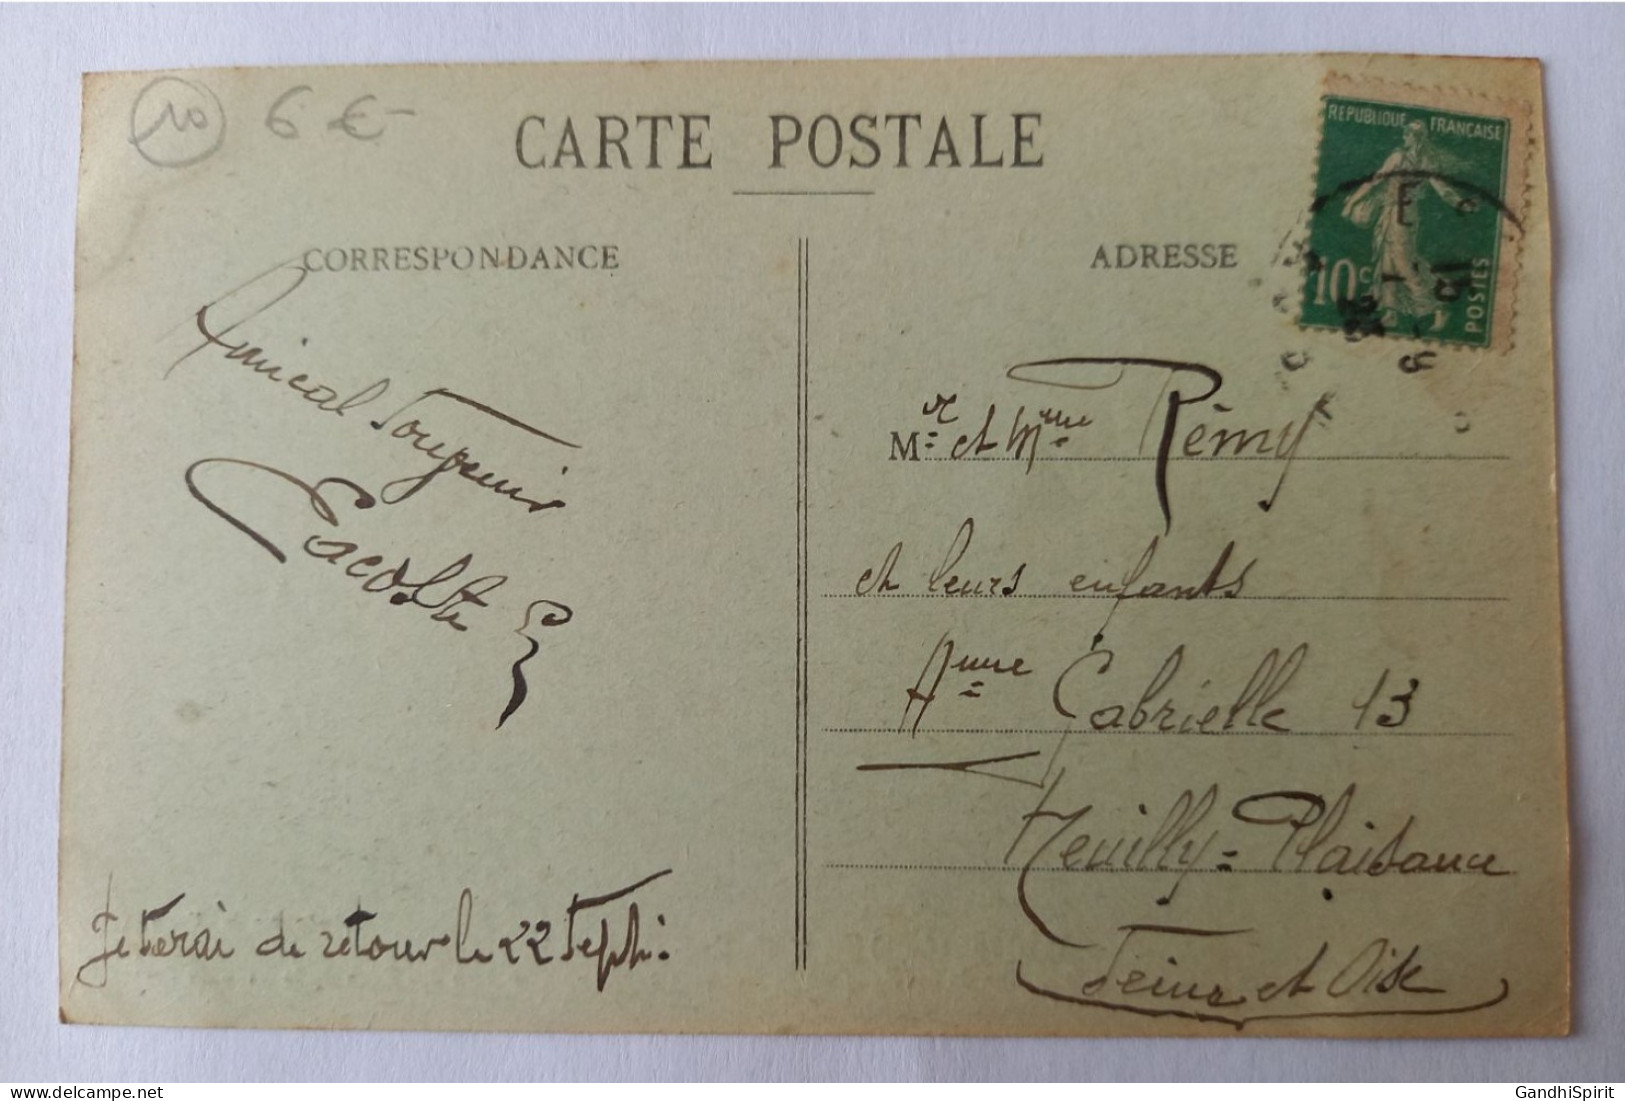 10 6 €-
CARTE POSTALE
REPUBLIQUE FRANÇAISE
10c
POSTES
CORRESPONDANCE
ADRESSE
Amical Souvenir
Lacoste
Je serai de retour le 22 Sept.
Mr et Mme Rémy
et leurs enfants
Anne Gabrielle 13
Neuilly-Plaisance
Seine et Oise
GandhiSpirit